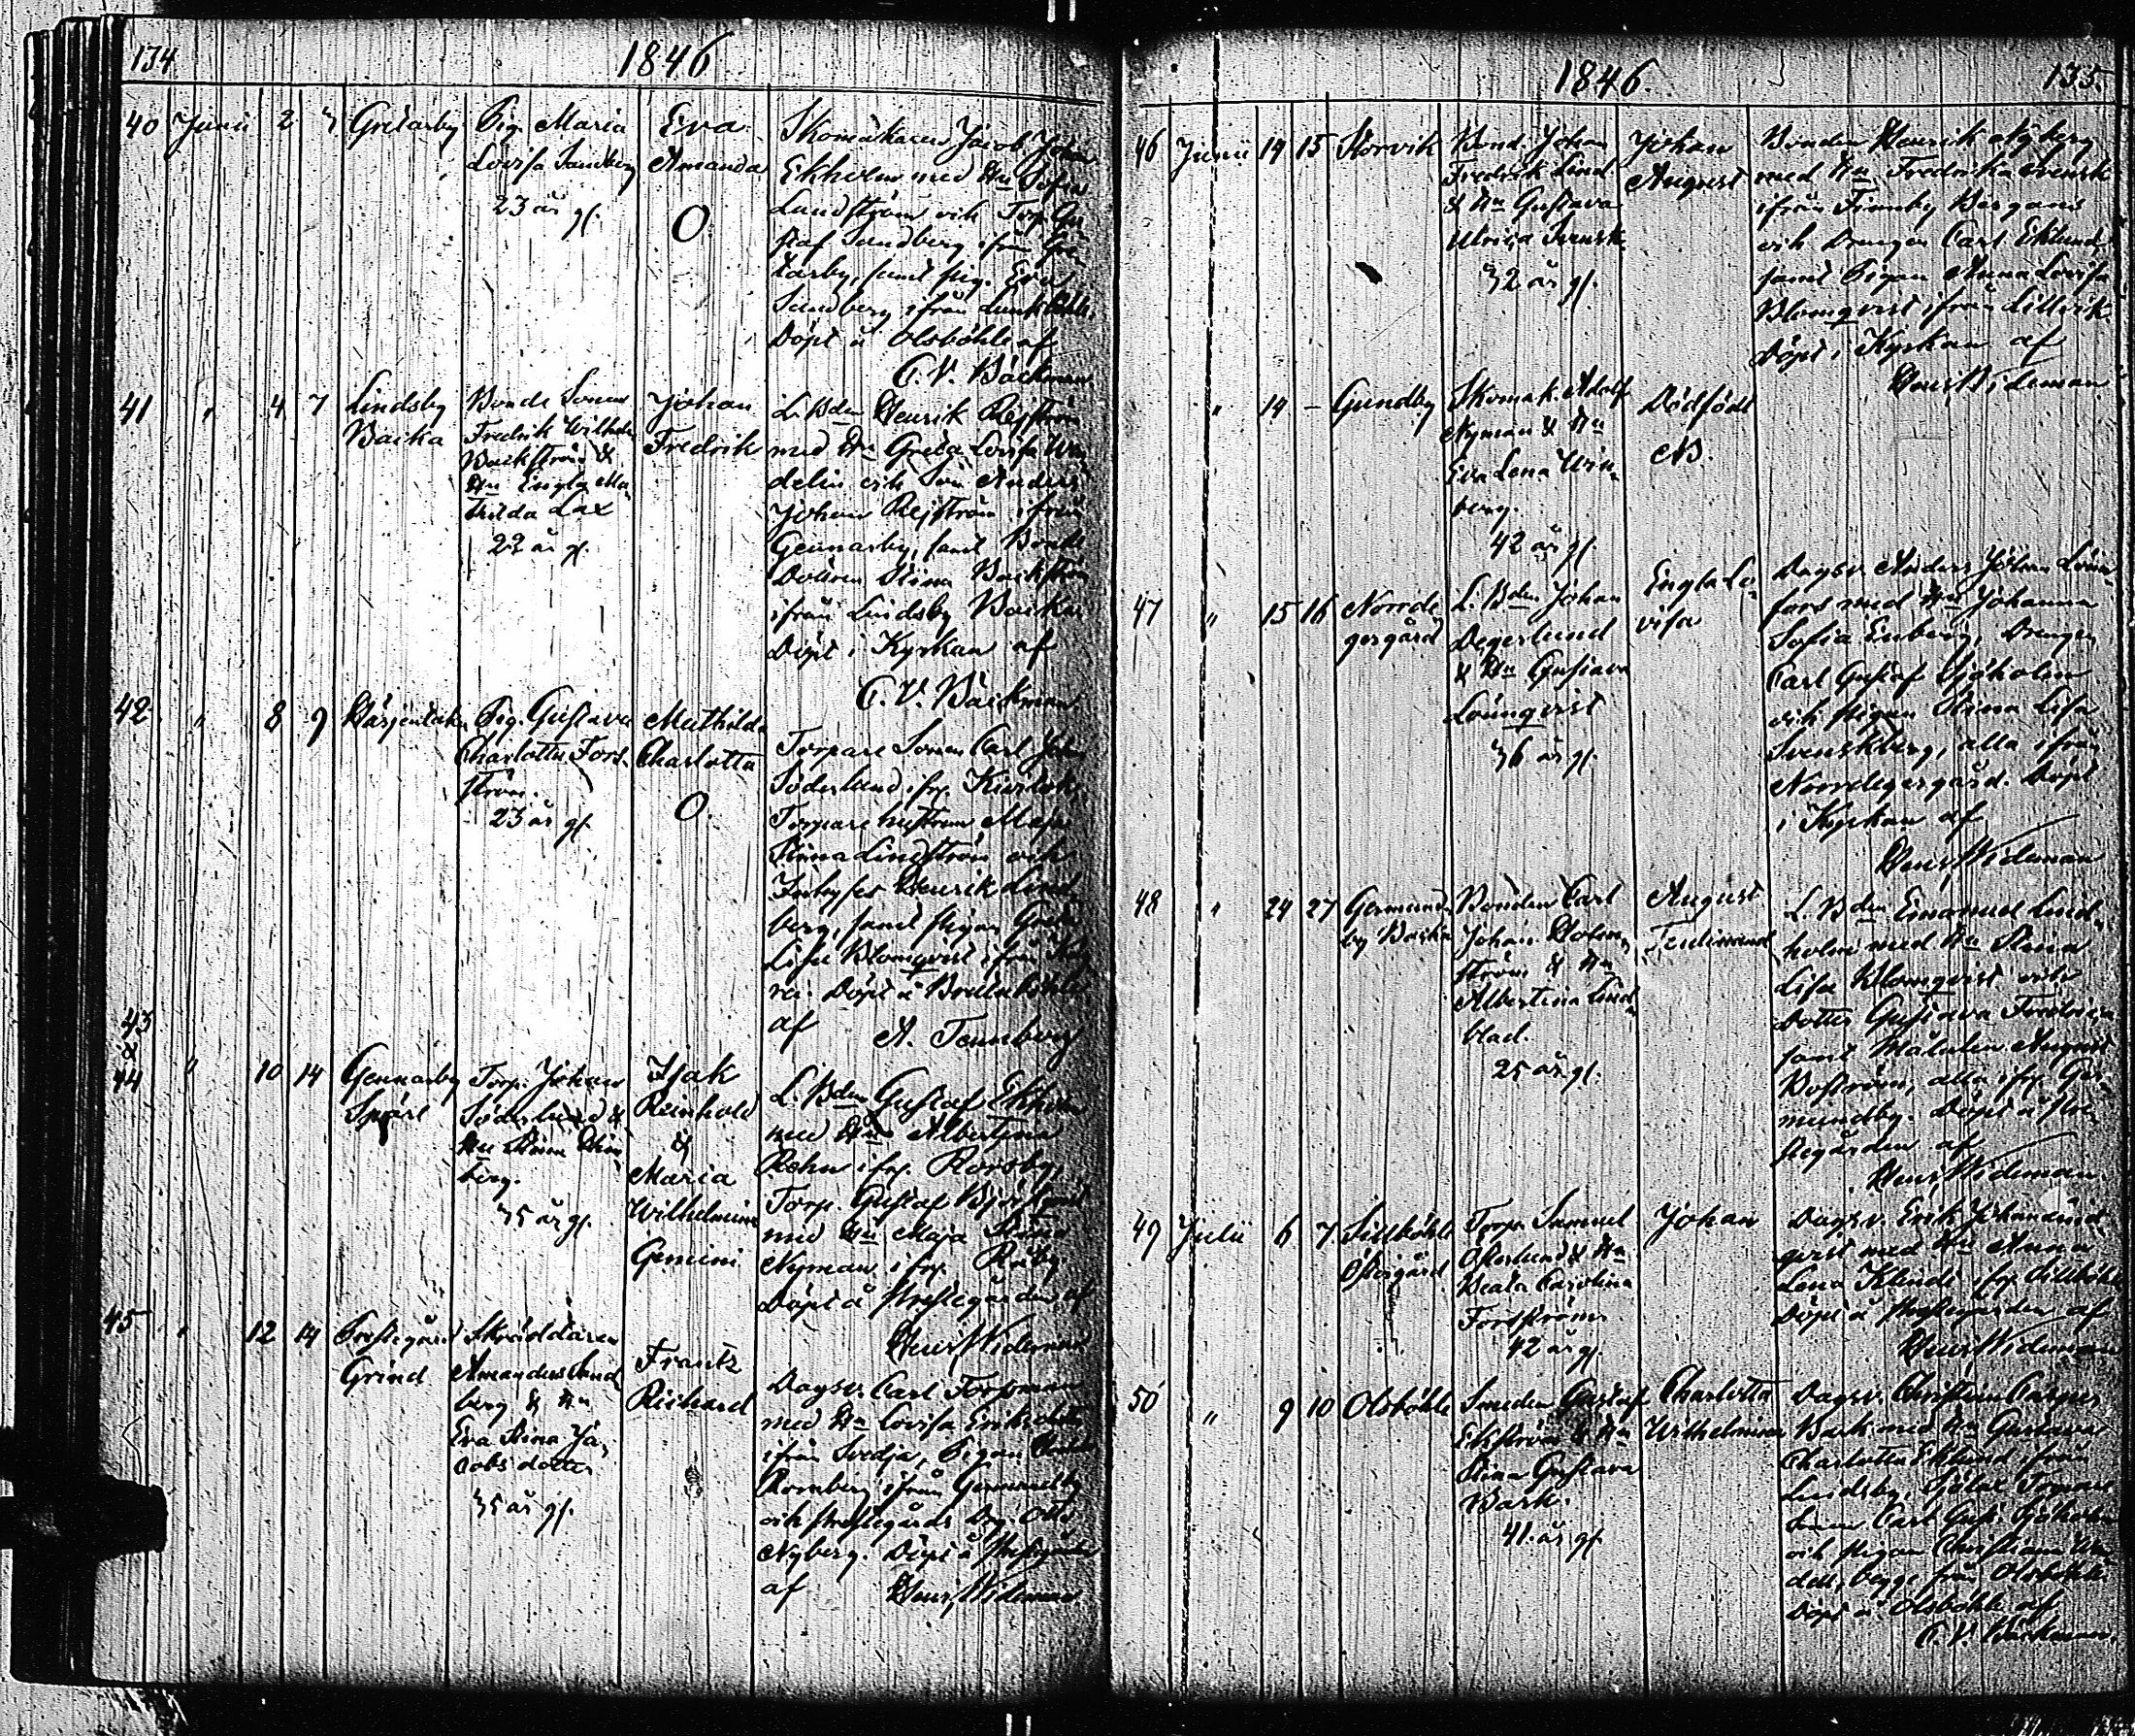 134
1846
40 Junii 2 3 Gretarby Pig. Maria Lovisa Sandberg 23 år gl. Eva Amanda O.
Skomakaren Jacob Johan
Ekholm med Hu Sofia
Lundström och Torp. Gu
staf Sandberg ifrån Gre
tarby, samt pig. Eva
Sandberg ifrån
Döpt å Olsböhle af
C. V. Bäckman.
41 " 4 7 Lindsby Backa Bonde Sonen Fredrik Wilhelm Backström & Hu Engla Ma thilda Lax 22 år gl. Johan Fredrik
L. Bden Henrik Rejström
med Hu Greta Lovisa Wen
delin och Son Anders
Johan Rejström ifrån
Gennarby, samt Bonde
Dottren Stina Backström
ifrån Lindsby Backa
Döpt i Kyrkan af
C. V. Bäckman.
42 " 8 9 Pig. Gustava Charlotta Fors ström. 23 år gl. Mathilda Charlotta O.
Torpare Sonen Carl Joh.
Söderlund ifr.
Torpare hustrun Maja
Stina Lindström och
Inhyses Henrik Lind
berg, samt pigan Greta
Lisa Blomqvist ifrån
Döpt å
af A. Tennberg
43 & 44 " 10 14 Gennarby Spärt Torp. Johan Söderlund & Hu Stina berg. 35 år gl. Isak Reinhold & Maria Wilhelmina Gemini.
L. Bden Gustaf Ekholm
med Hu Albertina
Rehn ifr. Rorsby,
Torp. Gustaf
med Hu Maja Stina
Nyman ifr. Råby
Döpt å Prestegården af
Henr. Wideman
45 " 12 14 Prestegård Grind Skräddaren Amandus Sand berg & Hu Eva Stina Ja cobsdotter 35 år gl. Frantz Richard
Dagsv. Carl Forsman
med Hu Lovisa Eriksdotter
ifrån Svedja, Pigan
Romberg ifrån Germundby
och prestegårds Drg. Otto
Nyberg. Döpt å Prestegården
af Henr. Wideman
1846.
135.
46 Junii 14 15 Storvik Bond. Johan Fredrik Lind & Hu Gustava Ulrica Svensk 32 år gl. Johan August
Bonden Henrik Nyberg
med Hu Fredrika Svensk
ifrån Finnby Bergans
och Drengen Carl Eklund
samt Pigan Anna Lovisa
Blomqvist ifrån Lillvik
Döpt i Kyrkan af
Henr. Wideman
" 14 – Gundby Skomak. Adolf Nyman & Hu Eva Lena Win berg. 42 år gl. Dödfödt NB.
47 " 15 16 Norrde gergård L. Bden Johan Degerlund & Hu Gustava Lönnqvist 36 år gl. Engla Lo visa
Dagsv. Anders Johan Lönn
fors med Hu Johanna
Sofia Enberg, Drengen
Carl Gustaf Sjöholm
och pigan Stina Lisa
Svenskberg, alla ifrån
Norrdegergård. Döpt
i Kyrkan af
Henr. Wideman
48 " 24 27 Germund by Backa Bonden Carl Johan Holm ström & Hu Albertina Lind blad. 25 år gl. August Ferdinand
L. Bden Emanuel Lind
holm med Hu Stina
Lisa Blomqvist och
dotter Gustava Fredrica
samt Målaren August
Boström, alla ifr. Ger
mundby. Döpt å Pre
stegården af
Henr. Wideman
49 Julii 6 7 Lillböhle Östergård Torp. Samuel Österlund & Hu Beata Carolina Forsström 42 år gl. Johan
Dagsv. Erik Johan Lind
qvist med Hu Anna
Lena Klinds ifr. Lillböhle
Döpt å Prestegården af
Henr. Wideman
50 " 9 10 Olsböhle Smeden Gustaf Ekström & Hu Stina Gustava Bark. 41 år gl. Charlotta Wilhelmina
Dagsv. Christian Casper
Bark med Hu Gustava
Charlotta Eklund ifrån
Lindsby, Torpare
Sonen Carl Gust. Sjöholm
och pigan Christina Wen
dell, begge från Olsböhle
Döpt å Olsböhle af
C. V. Bäckman.